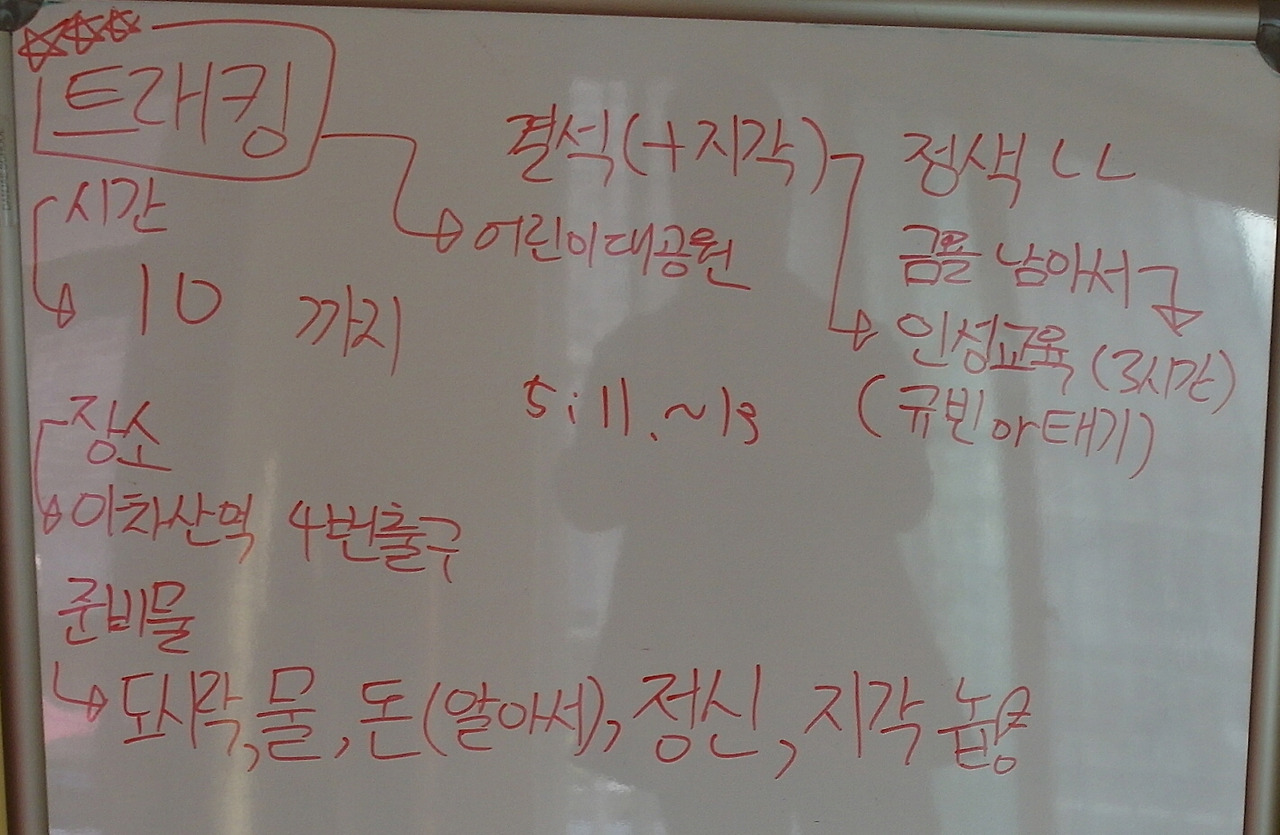 트래킹
시간
10 까지
장소
이차산역 4번출구
준비물
도시락, 물, 돈(알아서), 정신, 지각
어린이대공원
결석(+지각)
정색 ㄴㄴ
남아서
인성교육 (3시간)
(규빈아태기)
5:11.~13